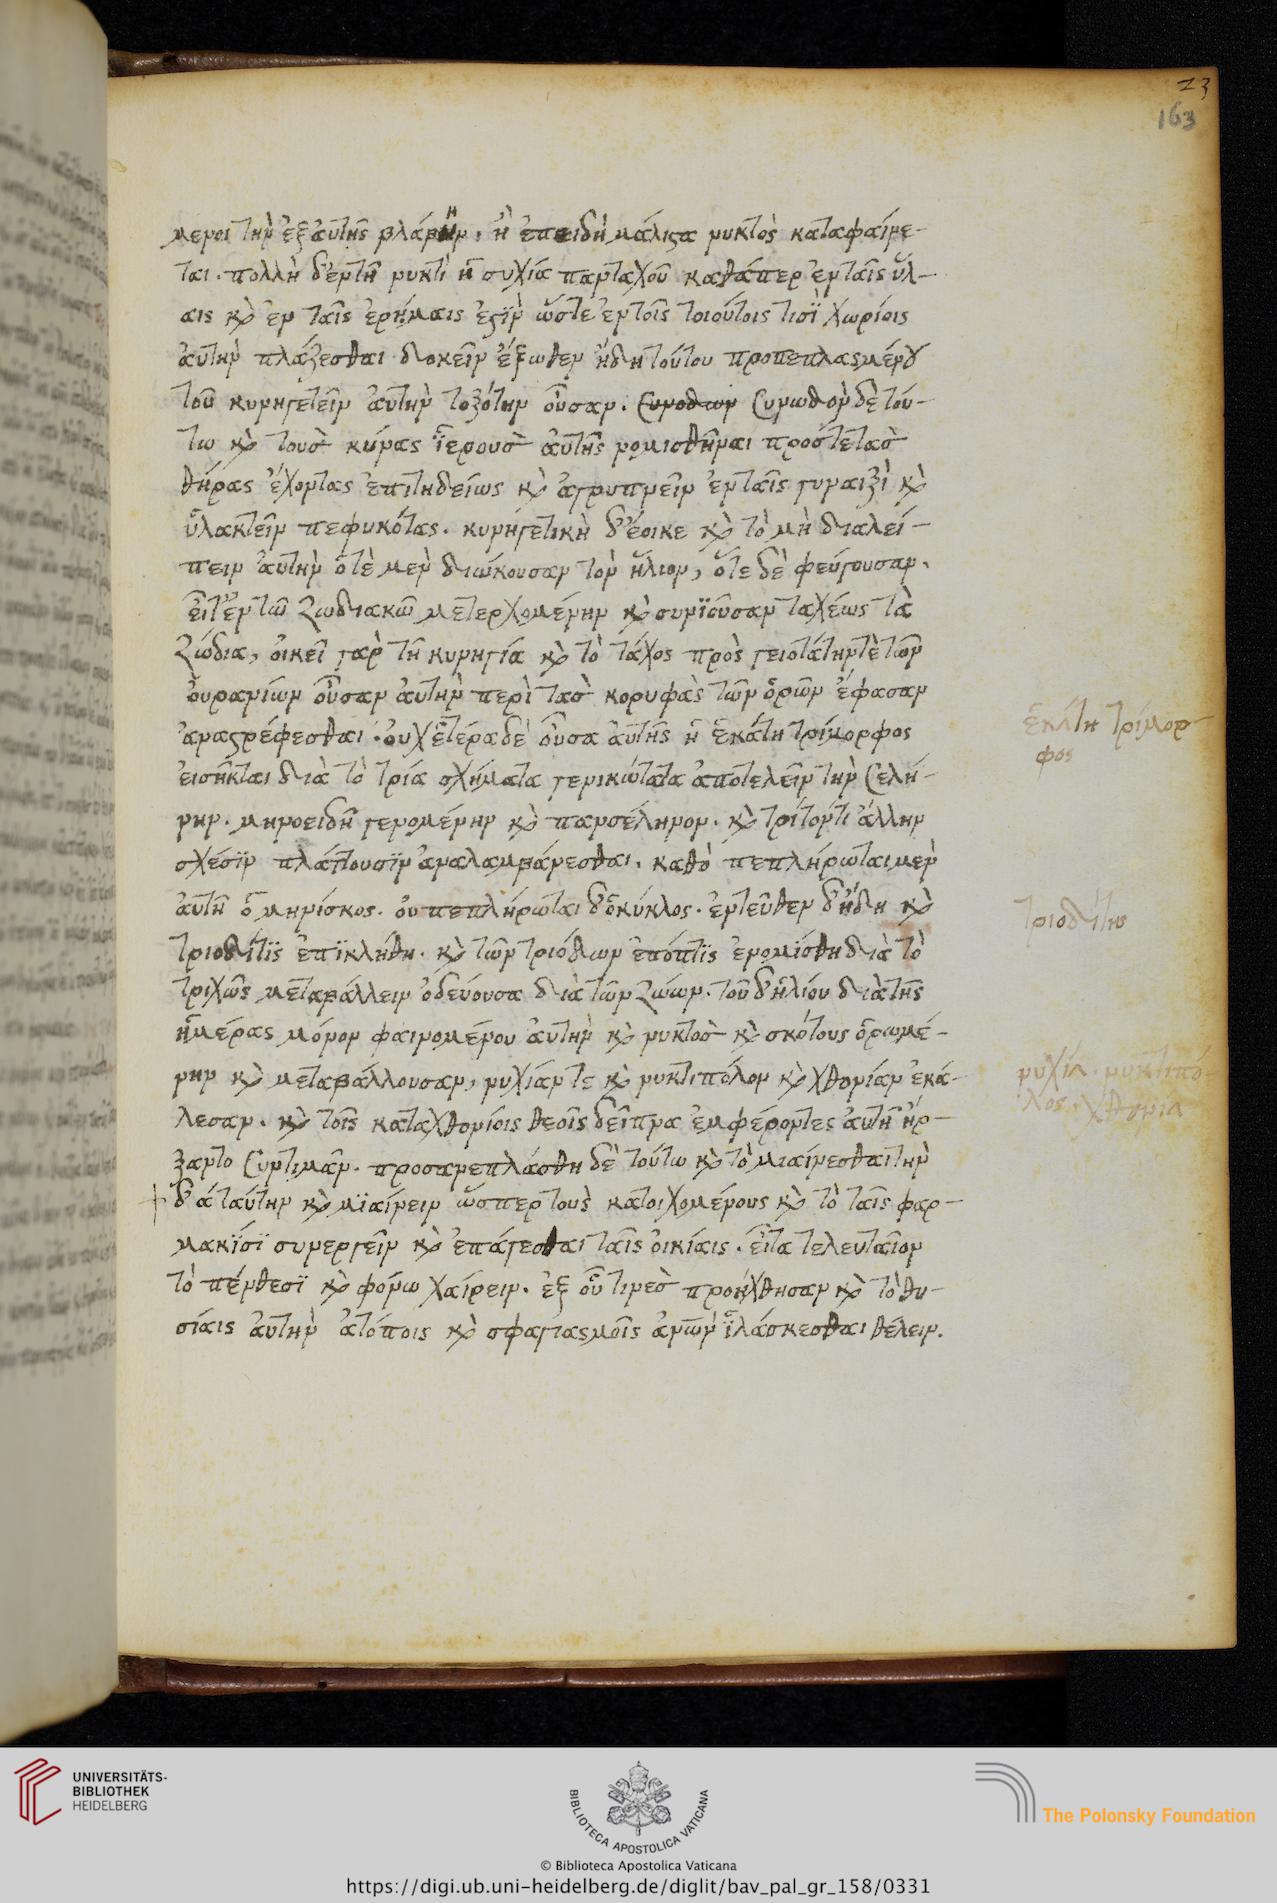 23
163
μενοι τὴν ἐξ αὐτῆς βλάβην. ἢ ἐπειδὴ μάλιστα νυκτὸς καταφαίνε-
ται. πολλὴ δ' ἐν τῆ νυκτὶ ἡσυχία πανταχοῦ καθάπερ ἐν ταῖς ὕλ-
αις κ ἐν ταῖς ἐρήμαις ἐστὶν ὥστε ἐν τοῖς τοιούτοις τισὶ χωρίοις
αὐτὴν πλάζεσθαι δοκεῖν ἔξωθεν ἤδη τούτου προπεπλασμένου
τοῦ κυνηγετεῖν αὐτὴν τοξότην οὖσαν. συνωδὸν δὲ τού-
τω κ τοὺσ κύνας ἱεροὺσ αὐτῆς νομισθῆναι πρόστετασ
θήρας ἔχοντας ἐπιτηδείως κ ἀγρυπνεῖν ἐν ταῖς γυναιξὶ κ
ὑλακτεῖν πεφυκότας. κυνηγετικὴ δ' ἔοικε κ τὸ μὴ διαλεί-
πειν αὐτὴν ὁτὲ μεν διώκουσαν τὸν ἥλιον, ὅτε δὲ φεύγουσαν.
εἶτ' ἐν τῶ ζωδιακῶ μετερχομένην κ συνϊοῦσαν ταχέως τὰ
ζώδια, οἰκεῖ γαρ τῆ κυνηγία κ τὸ τάχος προσγειοτάτην τὲ τῶν
οὐρανίων οὖσαν αὐτὴν περὶ τασ κορυφὰς τῶν ὀρῶν ἔφασαν
ἀναστρέφεσθαι. οὐχ ἑτέρα δὲ οὖσα αὐτῆς ἡ ἑκάτη τρίμορφος
εἰσῆκται διὰ τὸ τρία σχήματα γενικώτατα ἀποτελεῖν τὴν σελή-
νην. μηνοειδῆ γενομένην κ πανσέληνον. κ τρίτον τι ἄλλην
σχέσϊν πλάττουσϊν ἀναλαμβάνεσθαι. καθὸ πεπλήρωται μεν
αὐτῆ ὁ μηνίσκος. οὐ πεπλήρωται δ' ὁ κύκλος. ἐντεῦθεν δ' ἤδη κ
τριοδίτϊς ἐπϊκλήθη. κ τῶν τριόδων ἐπόπτϊς ἐνομϊσθη διὰ τὸ
τριχῶς μεταβάλλειν ὁδεύουσα διὰ τῶν ζώων. τοῦ δ' ἡλίου διὰ τῆς
ἡμέρας μόνον φαινομένου αὐτὴν κ νυκτοσ κ σκότους ὁρωμέ-
νην κ μεταβάλλουσαν, νυχίαν τε κ νυκτιπόλον κ χθονίαν ἐκά-
λεσαν. κ τοῖς καταχθονίοις θεοῖς δεῖπνα ἐμφέροντες αὐτῆ ἤρ-
ξαντο συντιμᾶν. προσανεπλάσθη δὲ τούτω κ τὸ μιαίνεσθαι τὴν
δάταύτην κ μϊαίνειν ὥσπερ τοὺς κατοιχομένους κ τὸ ταῖς φαρ-
μακίσϊ συνεργεῖν κ ἐπάγεσθαι ταῖς οἰκίαις. εἶτα τελευταῖον
τὸ πένθεσϊ κ φόνω χαίρειν. ἐξ οὗ τινεσ προήχθησαν κ τὸ θυ-
σίαις αὐτὴν ἀτόποις κ σφαγιασμοῖς ανων ἱλάσκεσθαι θέλειν.
ἑκάτη τρίμορ-
φος
τριοδίτις
νυχία. νυκτιπό-
λος. χθονία
UNIVERSITÄTS-
BIBLIOTHEK
HEIDELBERG
BIBLIOTECA APOSTOLICA VATICANA
The Polonsky Foundation
© Biblioteca Apostolica Vaticana
https://digi.ub.uni-heidelberg.de/diglit/bav_pal_gr_158/0331